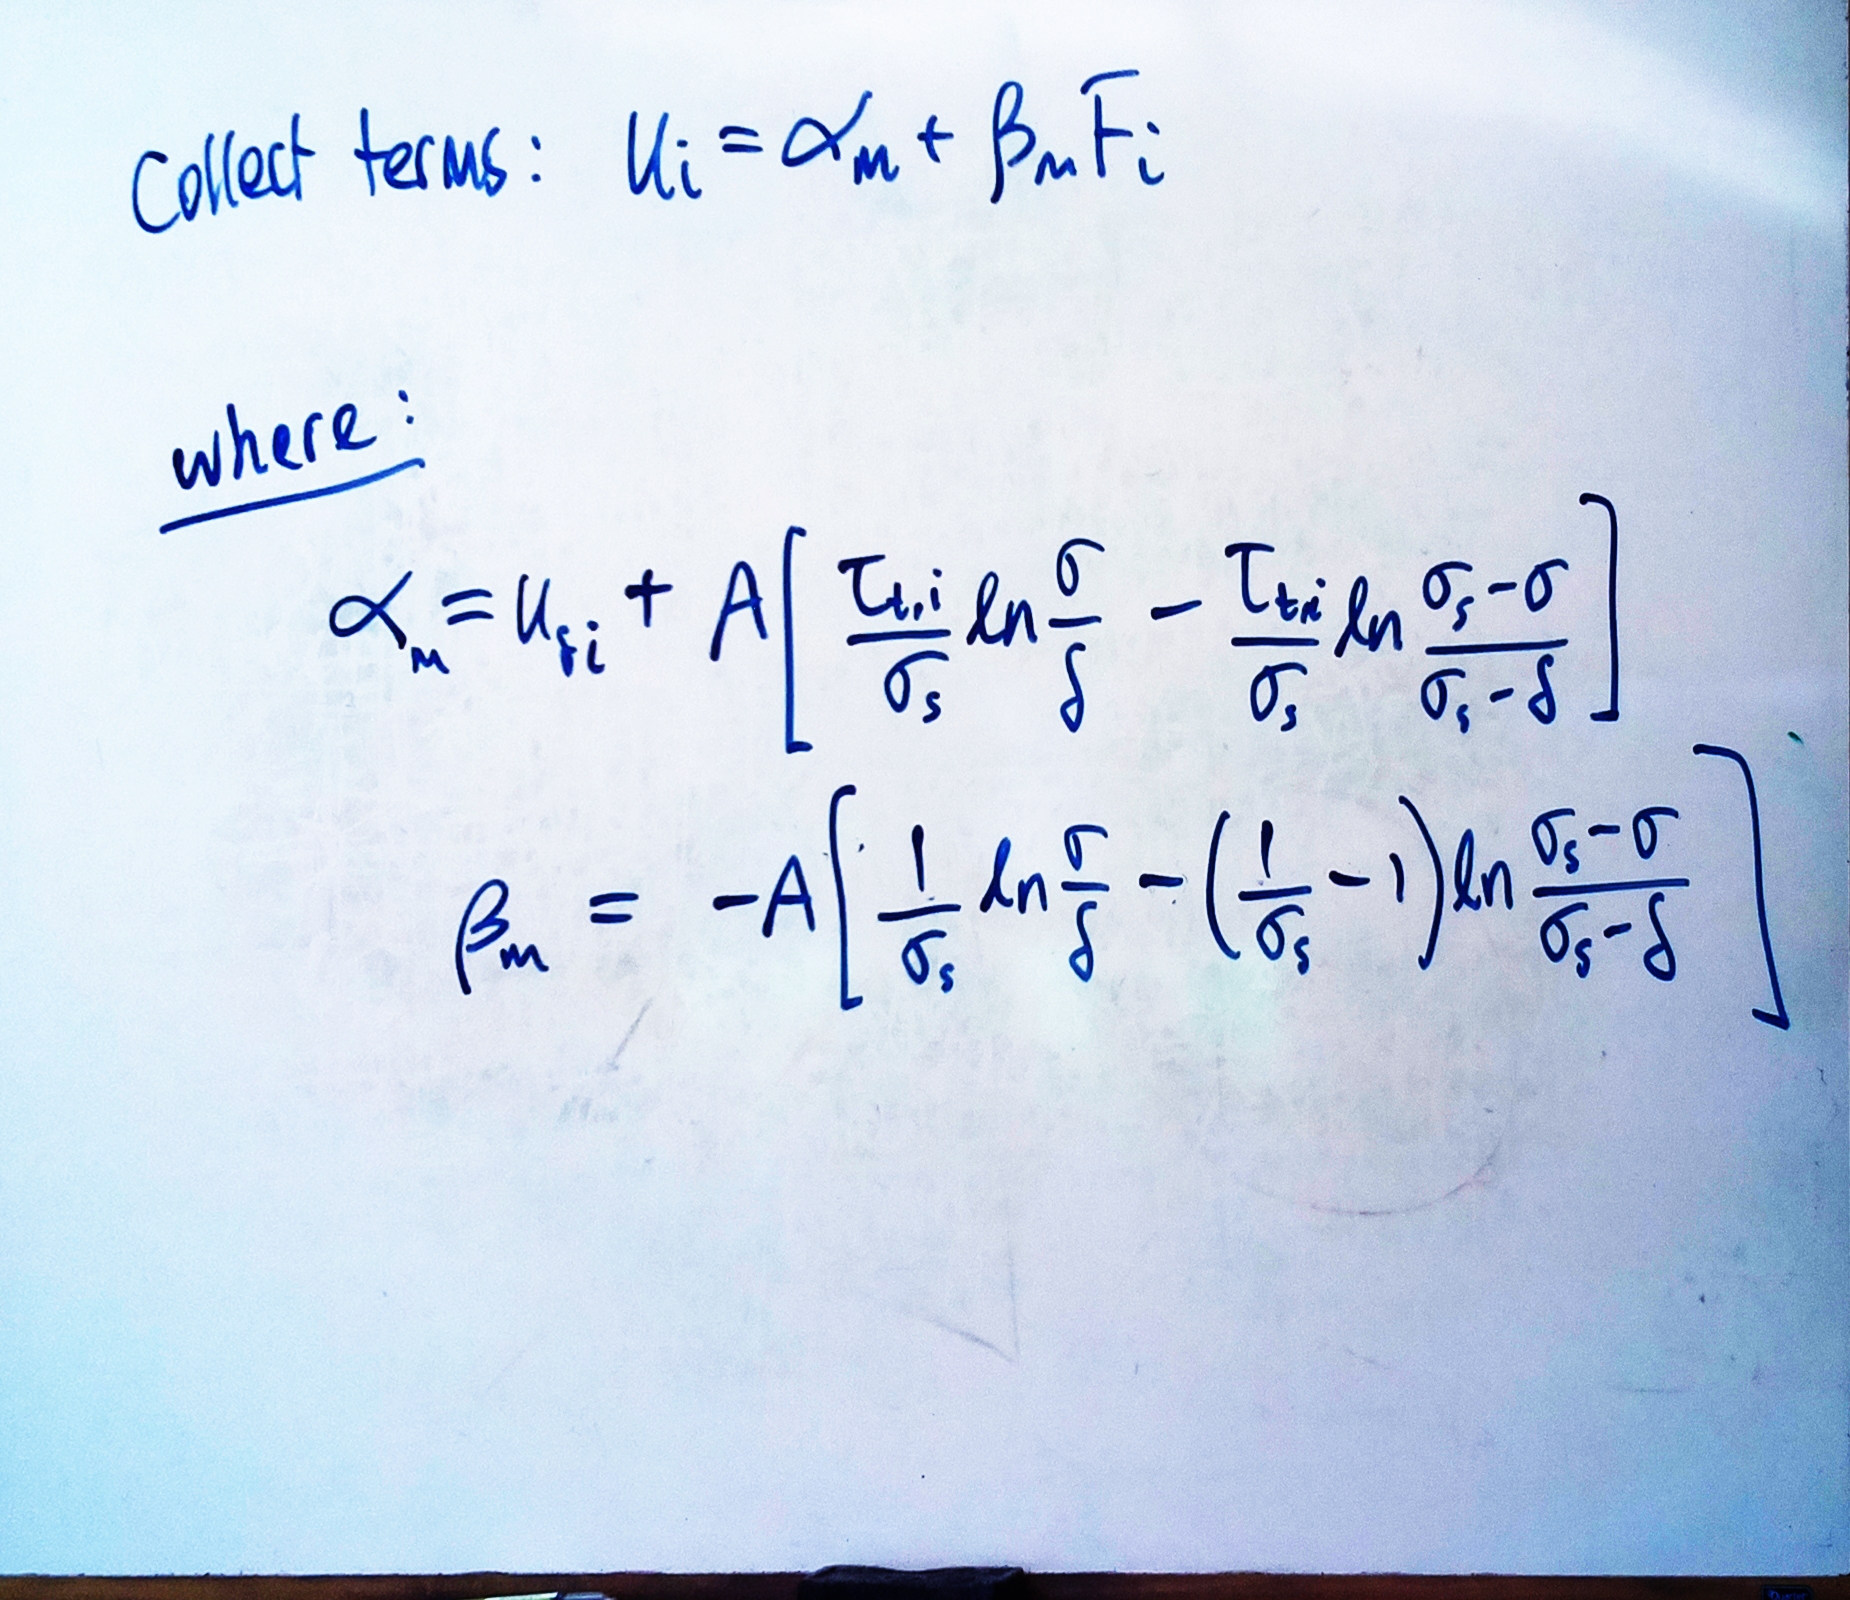 Collect terms: u_i = α_m + β_m F_i
where:
α_m = u_{si} + A[ τ_{t,i}/σ_s ln σ/δ − τ_{t,i}/σ_s ln (σ_s−σ)/(σ_s−δ) ]
β_m = −A[ 1/σ_s ln σ/δ − (1/σ_s − 1) ln (σ_s−σ)/(σ_s−δ) ]